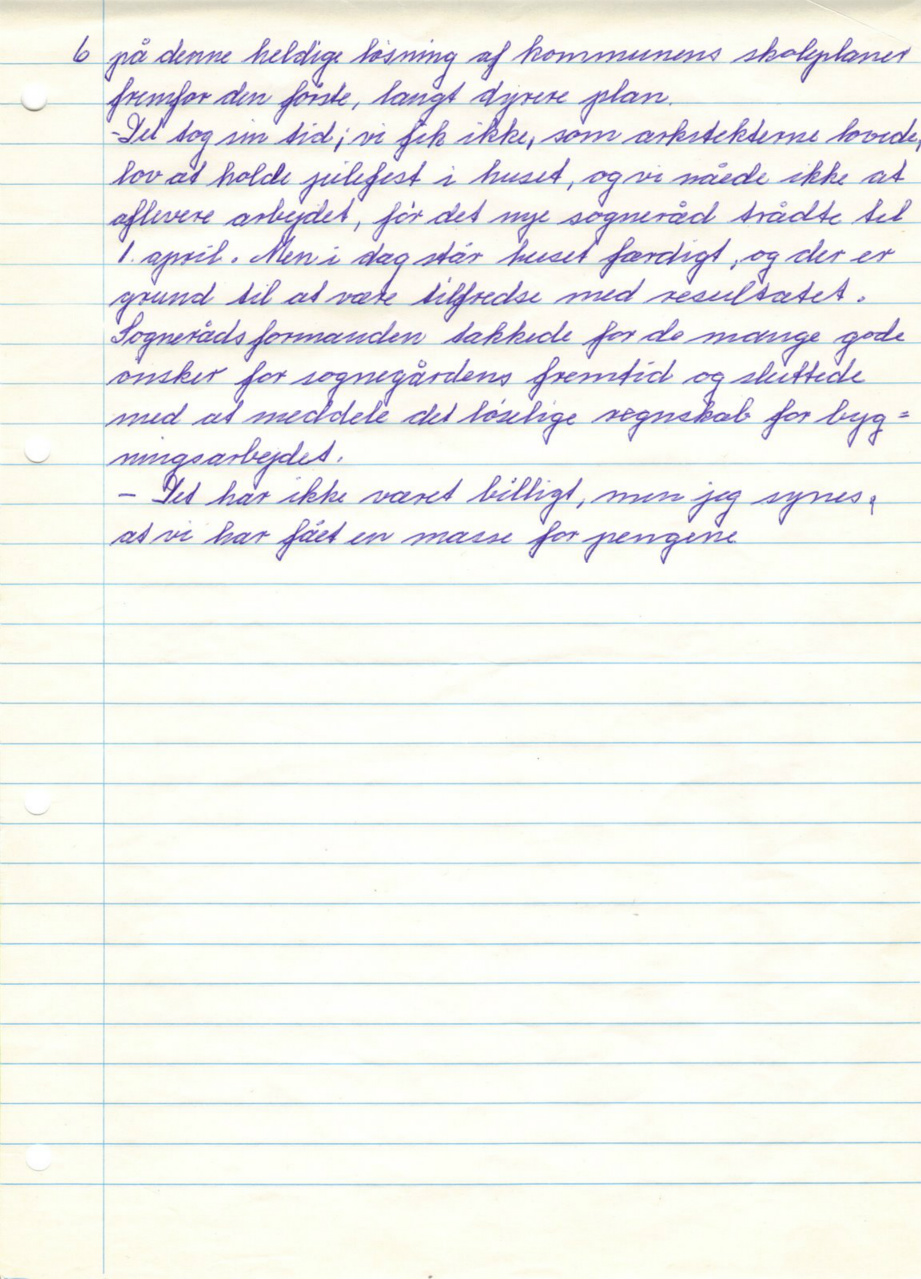 6 på denne heldige løsning af kommunens skoleplaner
fremfor den første, langt dyrere plan.
-Det tog sin tid; vi fik ikke, som arkitekterne lovede,
lov at holde julefest i huset, og vi nåede ikke at
aflevere arbejdet, før det nye sogneråd trådte til
1. april. Men i dag står huset færdigt, og der er
grund til at være tilfredse med resultatet.
Sognerådsformanden takkede for de mange gode
ønsker for sognegårdens fremtid og sluttede
med at meddele det løselige regnskab for byg=
ningsarbejdet.
- Det har ikke været billigt, men jeg synes,
at vi har fået en masse for pengene